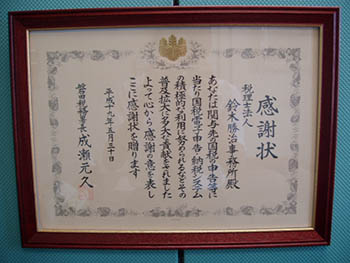 感謝状
税理士法人
鈴木勝治事務所殿
あなたは関与先の国税の申告等に
当たり国税電子申告・納税システム
の積極的な利用に努められるなどその
普及拡大に多大な貢献をされました
よって心から感謝の意を表し
ここに感謝状を贈ります
平成十九年五月三十日
税務署長 成瀬元久